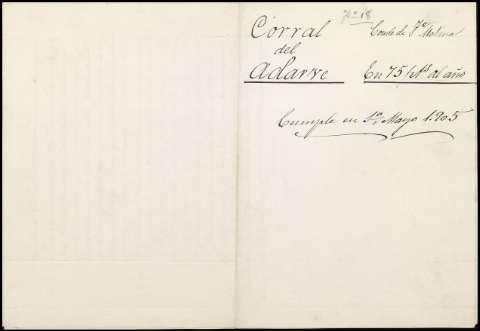 Nº 18
Corral
del
Adarve
Conde de
En 75 pts al año
Cumple en 1º Mayo 1.905